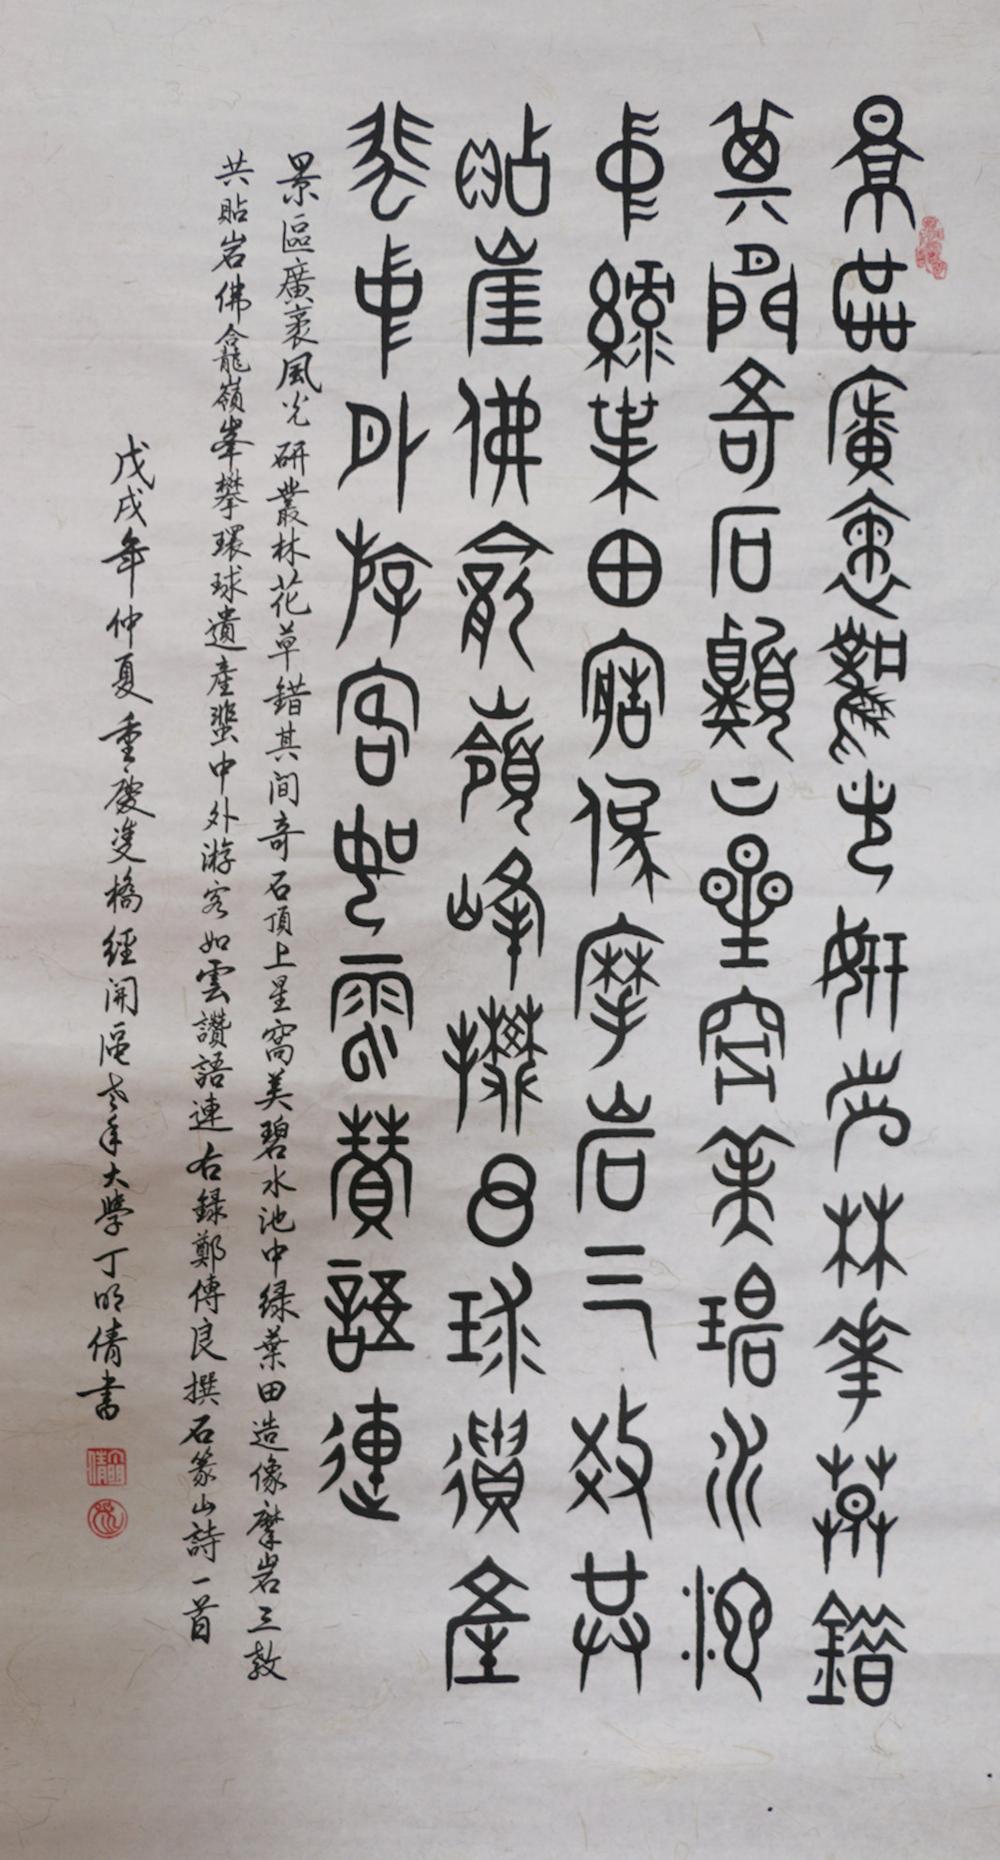 景區廣袤風光妍叢林華草錯
其間奇石顛上星窩美碧水池
中綠葉田窖像摩岩三教共
貼崖佛龕嶺峰攀環球遺產
蜚中外游客如雲贊語連
景區廣袤風光研叢林花草錯其间奇石頂上星窩美碧水池中绿葉田造像摩岩三教
共貼岩佛龕嶺峯攀環球遺產蜚中外游客如雲讚語連右録鄭傳良撰石篆山詩一首
戊戌年仲夏重慶雙橋經開區老年大學丁明倩書